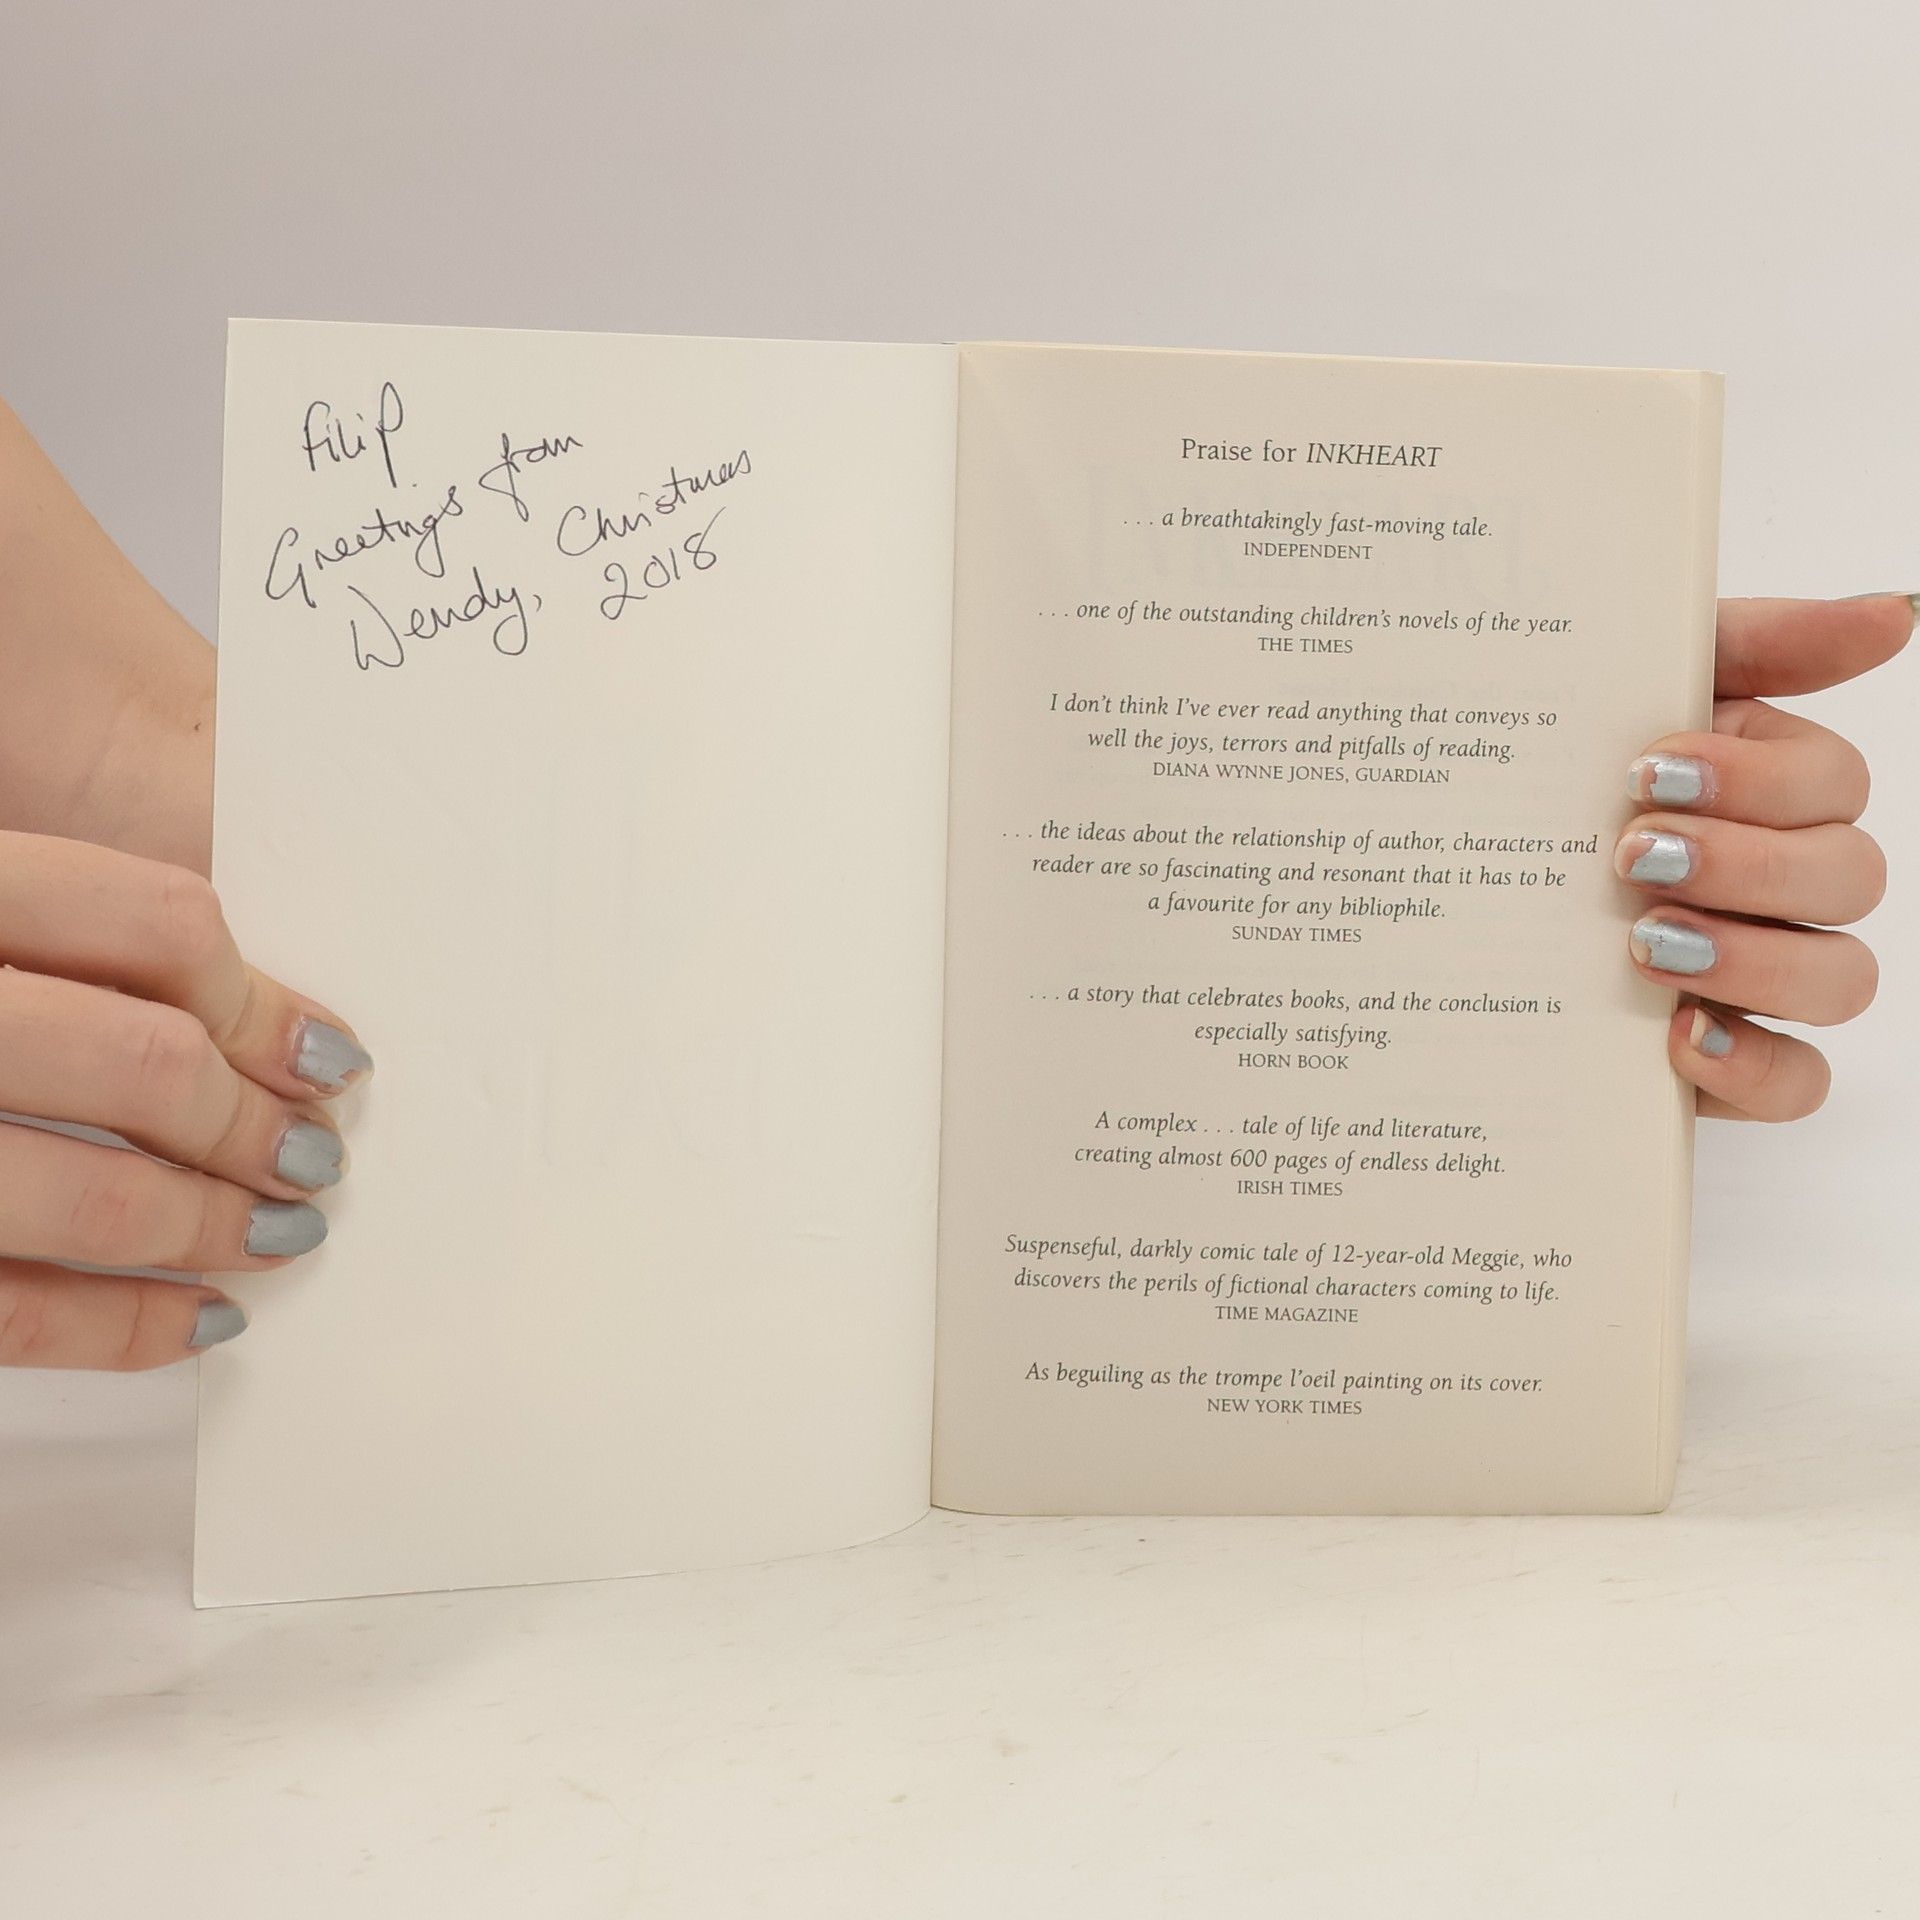 Filip
Greetings from
Wendy, Christmas
2018
Praise for INKHEART
. . . a breathtakingly fast-moving tale.
INDEPENDENT
. . . one of the outstanding children's novels of the year.
THE TIMES
I don't think I've ever read anything that conveys so
well the joys, terrors and pitfalls of reading.
DIANA WYNNE JONES, GUARDIAN
. . . the ideas about the relationship of author, characters and
reader are so fascinating and resonant that it has to be
a favourite for any bibliophile.
SUNDAY TIMES
. . . a story that celebrates books, and the conclusion is
especially satisfying.
HORN BOOK
A complex . . . tale of life and literature,
creating almost 600 pages of endless delight.
IRISH TIMES
Suspenseful, darkly comic tale of 12-year-old Meggie, who
discovers the perils of fictional characters coming to life.
TIME MAGAZINE
As beguiling as the trompe l'oeil painting on its cover.
NEW YORK TIMES